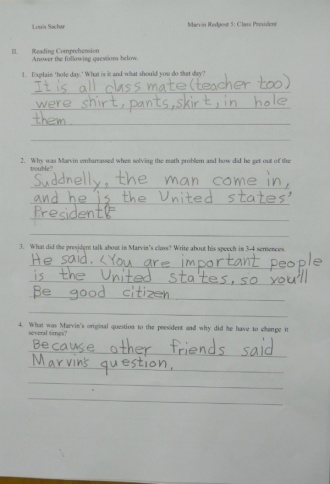 Louis Sachar Marvin Redpost 5: Class President
II. Reading Comprehension
Answer the following questions below.
1. Explain 'hole day.' What is it and what should you do that day?
It is all class mate (teacher too)
were shirt, pants, skirt, in hole
them.
2. Why was Marvin embarrassed when solving the math problem and how did he get out of the
trouble?
Suddnelly, the man come in,
and he is the United states'
President
3. What did the president talk about in Marvin's class? Write about his speech in 3-4 sentences.
He said. <You are important people
is the United states, so you'll
Be good citizen
4. What was Marvin's original question to the president and why did he have to change it
several times?
Because other friends said
Marvin's question.